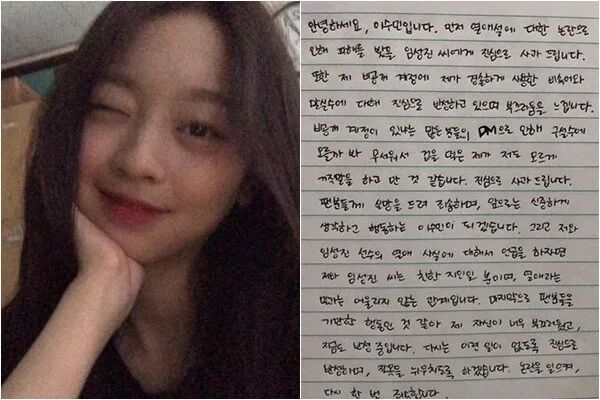 안녕하세요, 이수민입니다. 먼저 열애설에 대한 논란으로
인해 피해를 받았을 임성진 씨에게 진심으로 사과 드립니다.
또한 제 비공개 계정에 제가 경솔하게 사용한 비속어와
말실수에 대해 진심으로 반성하고 있으며 부끄러움을 느낍니다.
비공개 계정이 있냐는 많은 분들의, DM으로 인해 구설수에
오를까 봐 무서워서 겁을 먹은 제가 저도 모르게
거짓말을 하고 만 것 같습니다. 진심으로 사과 드립니다.
팬분들께 실망을 드려 죄송하며, 앞으로는 신중하게
생각하고 행동하는 이수민이 되겠습니다. 그리고 저와
임성진 선수의 열애 사실에 대해서 언급을 하자면
저와 임성진 씨는 친한 지인일 뿐이며, 열애라는
말과는 어울리지 않는 관계입니다. 마지막으로 팬분들을
기만한 행동인 것 같아 제 자신이 너무 부끄러웠고,
지금도 반성 중입니다. 다시는 이런 일이 없도록 진심으로
반성하며, 잘못을 뉘우치도록 하겠습니다. 논란을 일으켜,
다시 한 번 죄송합니다.